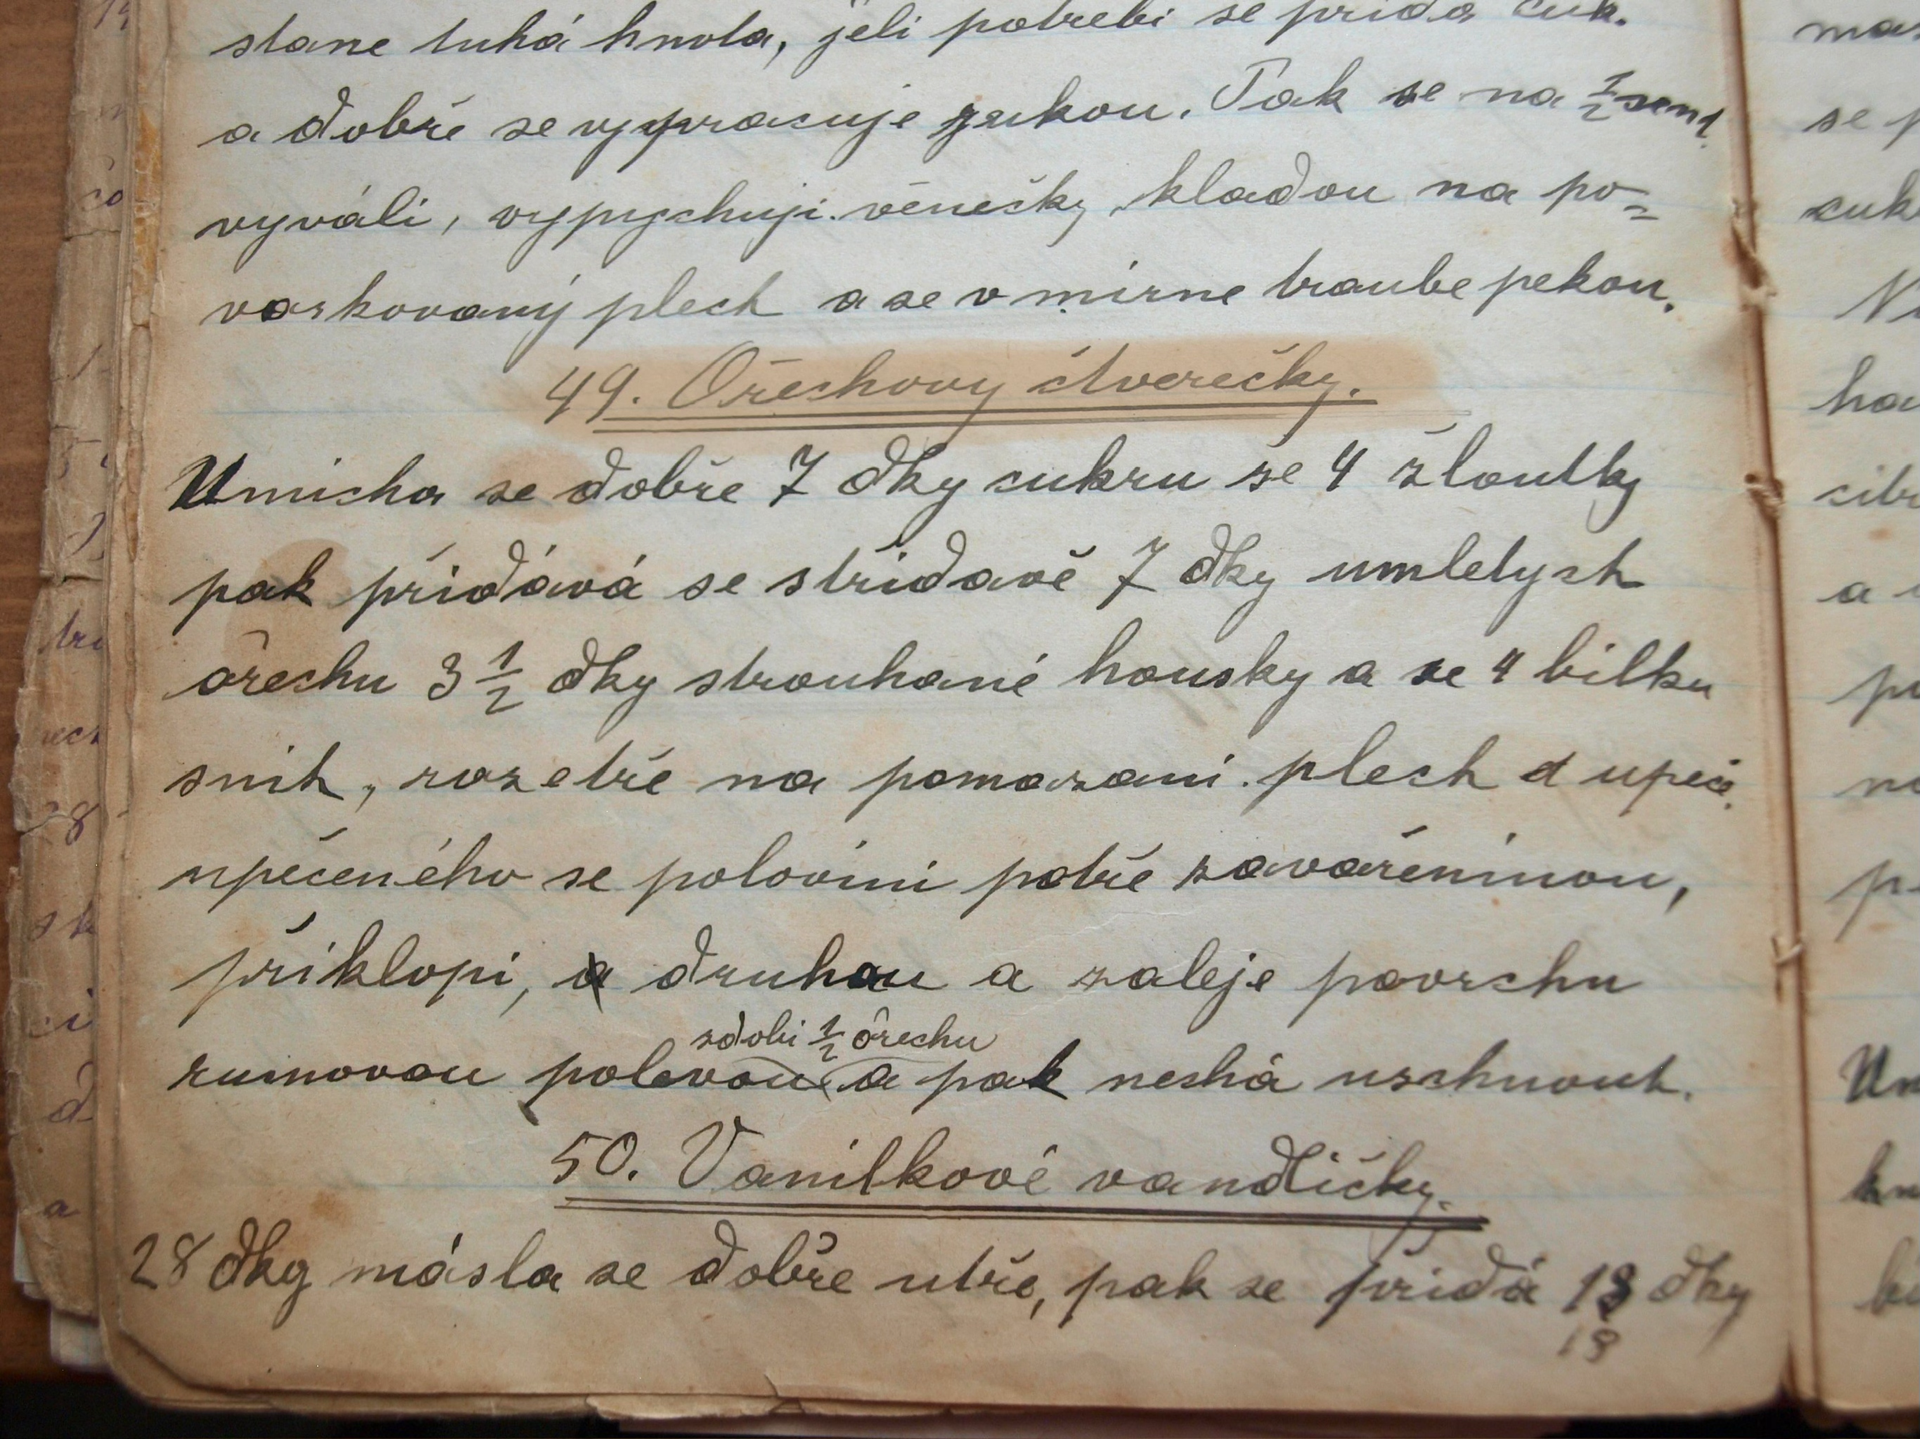 stane tuhá hmota, jeli potrebi se přida cuk.
a dobře se vypracuje rukou. Pak se na 1/2 cent.
vyváli, vypychuji věnečky, kladou na po=
vaskovaný plech a se v mirne traube pekou.
49. Ořechovy čtverečky.
Umicha se dobře 7 dky cukru se 4 žloutky
pak přidává se střidavě 7 dky umletych
ořechu 3 1/2 dky strouhané housky a se 4 bilku
snih, rozetře na pomazani plech a upeče.
upečeného se polovini potře zavařeninou,
přiklopi, druhou a zaleje povrchu
zdobi 1/2 ořechu
rumovou polevou a pak nechá uschnout.
50. Vanilkové vandličky.
28 dkg másla se dobře utře, pak se přidá 18 dky
18